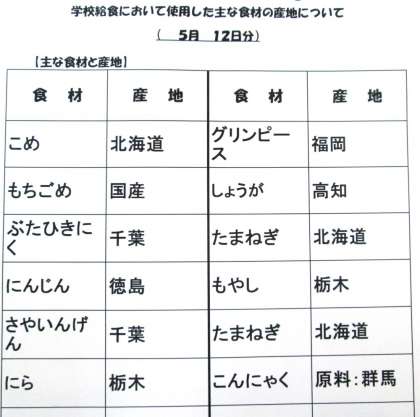 学校給食において使用した主な食材の産地について
( 5月 12日分)
【主な食材と産地】
食 材 産 地 食 材 産 地
こめ 北海道 グリンピー
ス 福岡
もちごめ 国産 しょうが 高知
ぶたひきに
く 千葉 たまねぎ 北海道
にんじん 徳島 もやし 栃木
さやいんげ
ん 千葉 たまねぎ 北海道
にら 栃木 こんにゃく 原料:群馬